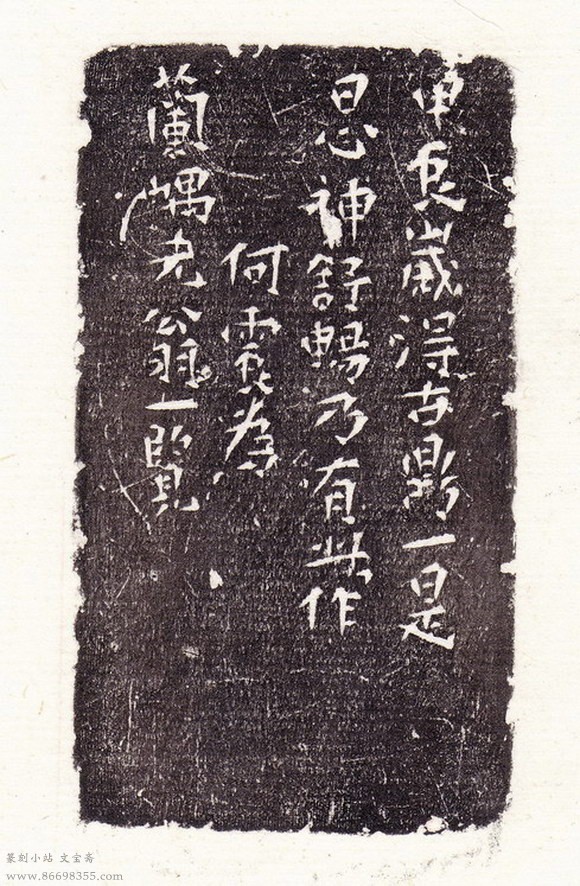 甲辰歲得古鼎一是
日心神舒暢乃有此作
何震為
蘭嵎老翁一覽
篆刻小站 文宝斋
www.86698355.com